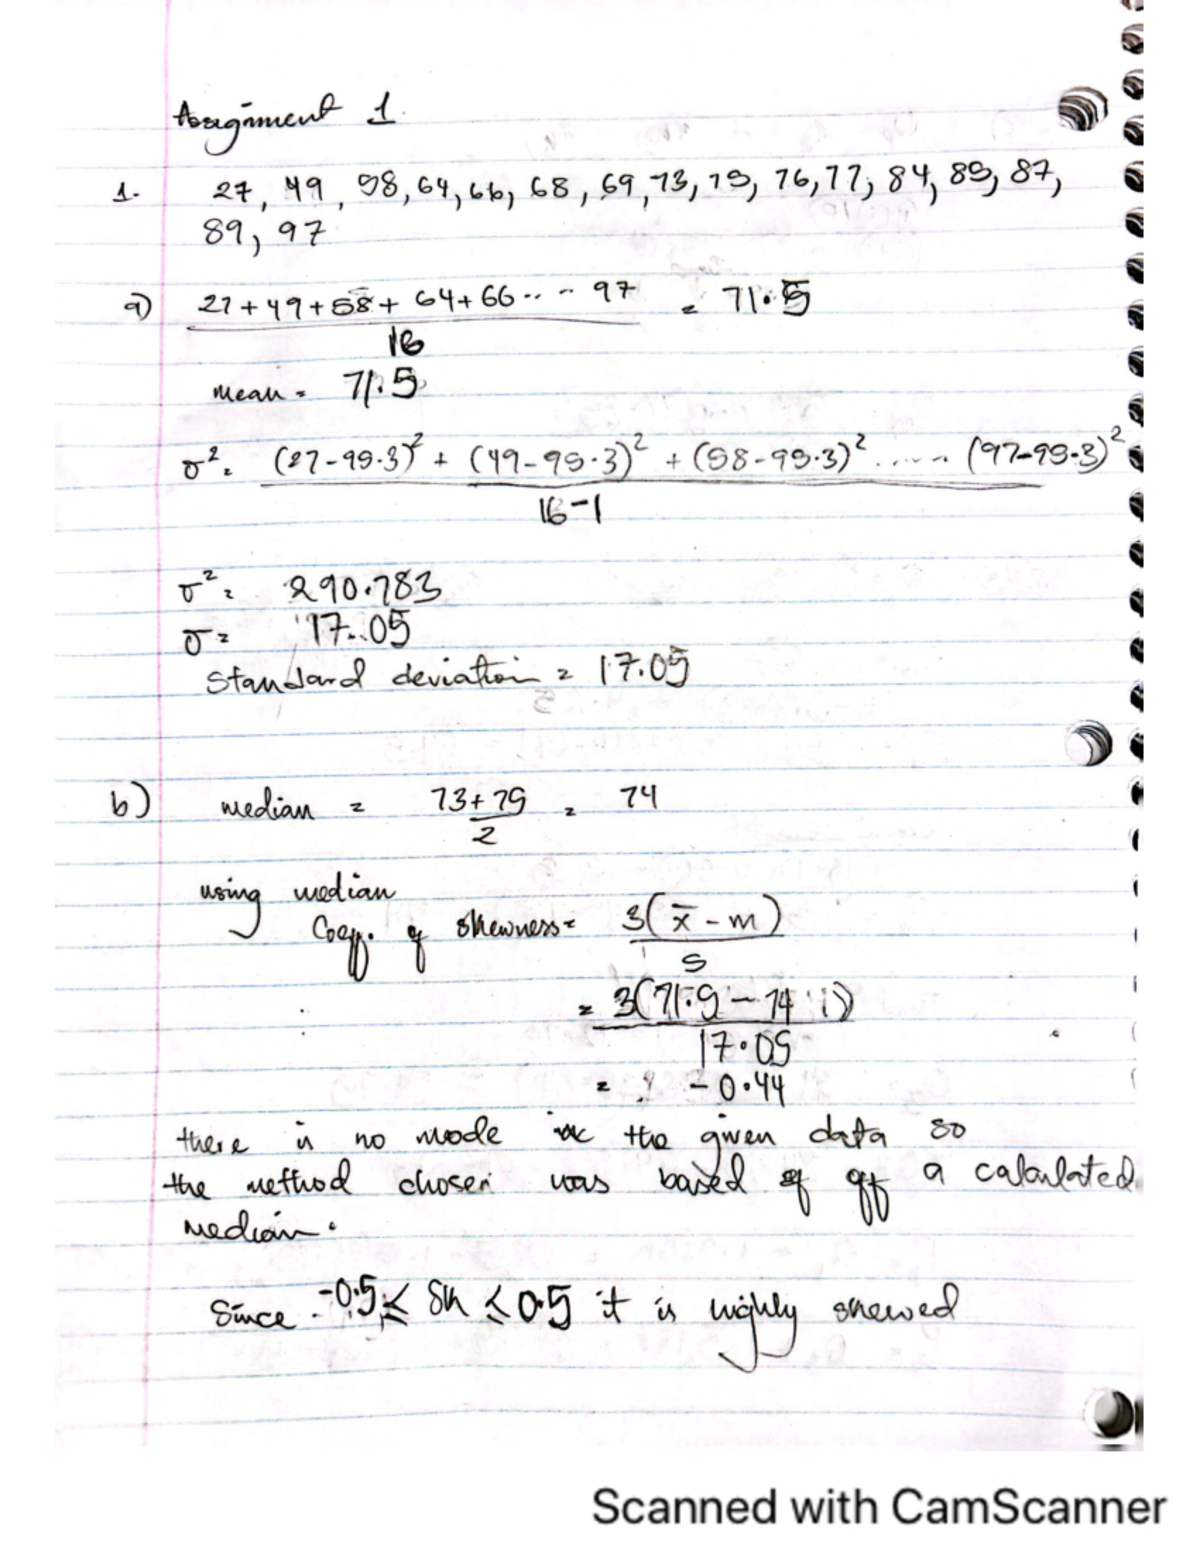 Assignment 1.
1. 27, 49, 58, 64, 66, 68, 69, 73, 75, 76, 77, 84, 85, 87,
89, 97
a) 27+49+58+ 64+66... - 97 = 71.5
16
mean = 71.5
σ² = (27-95.3)² + (49-95.3)² + (58-95.3)² ..... (97-95.3)²
16-1
σ² = 290.783
σ = 17.05
Standard deviation = 17.05
b) median = 73+75 = 74
2
using median
Coeff. of skewness = 3(x̄ - m)
s
= 3(71.5 - 74)
17.05
= -0.44
there is no mode in the given data so
the method chosen was based of off a calculated
median.
Since -0.5 ≤ Sk ≤ 0.5 it is highly skewed
Scanned with CamScanner